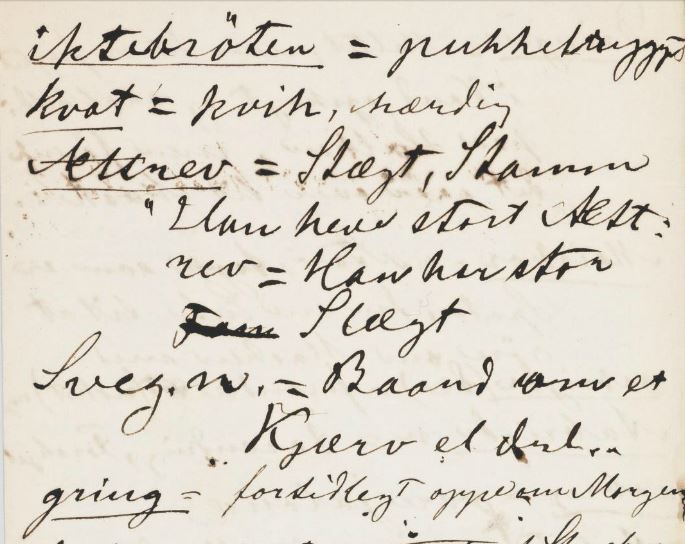 iktebröten = pukkelrygget
kvat = kvik, nærdig
Ættrev = Slægt, Stamm
"Han heve stort Ætt:
rev = Han har stor
Slægt
Sveg. n. = Baand om et
Kjærv el. desl..
gring = forsidlegt oppe om Morgen